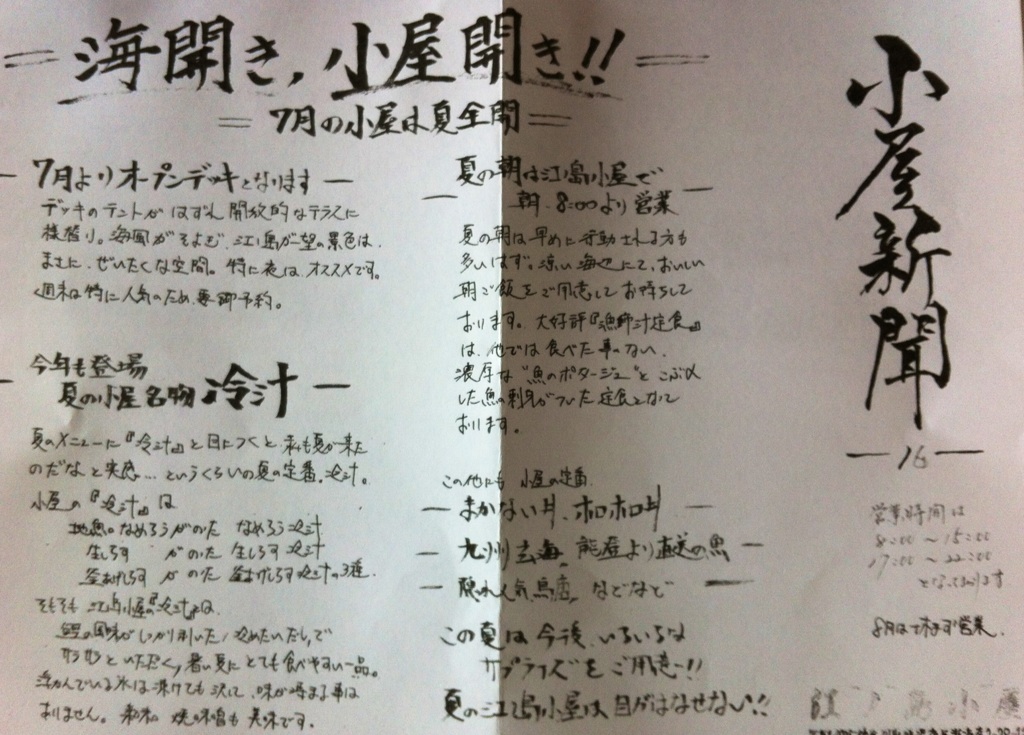 海開き、小屋開き!!
7月の小屋は夏全開
小屋新聞
16
営業時間は
8:00〜15:00
17:00〜22:00
となっております
8月は休まず営業。
7月よりオープンデッキとなります
デッキのテントがはずれ開放的なテラスに
様替り。海風がそよぎ、江ノ島が望め景色は、
まさに、ぜいたくな空間。特に夜は、オススメです。
週末は特に人気のため、要御予約。
今年も登場
夏の小屋名物 冷汁
夏のメニューに『冷汁』と目につくと
のだなと実感…というくらいの夏の定番、冷汁。
小屋の『冷汁』は
地魚のなめろうがのった なめろう冷汁
生しらす がのった 生しらす冷汁
釜あげしらす がのった 釜あげしらす冷汁の3種。
そもそも 江ノ島小屋の『冷汁』は、
鰹の風味がしっかり利いた冷めたいだしで
サラサラといただく、暑い夏にとても食べやすい一品。
浮かんでいる氷は溶けても決して味が薄まる事は
ありません。 焼味噌も美味です。
夏の朝は江ノ島小屋で
朝、8:00より営業
夏の朝は早めに行動される方も
多いはず。涼しい海辺にて、おいしい
朝ご飯をご用意してお待ちして
おります。大好評『漁師汁定食』
は、他では食べた事のない、
濃厚な"魚のポタージュ"とこぶ〆
した魚の刺身がついた定食となって
おります。
この他にも 小屋の定番
まかない丼、ホロホロ丼
九州玄海、能登より直送の魚
隠れ人気 などなど
この夏は今後、いろいろな
サプライズをご用意〜!!
夏の江ノ島小屋は、目がはなせない!!